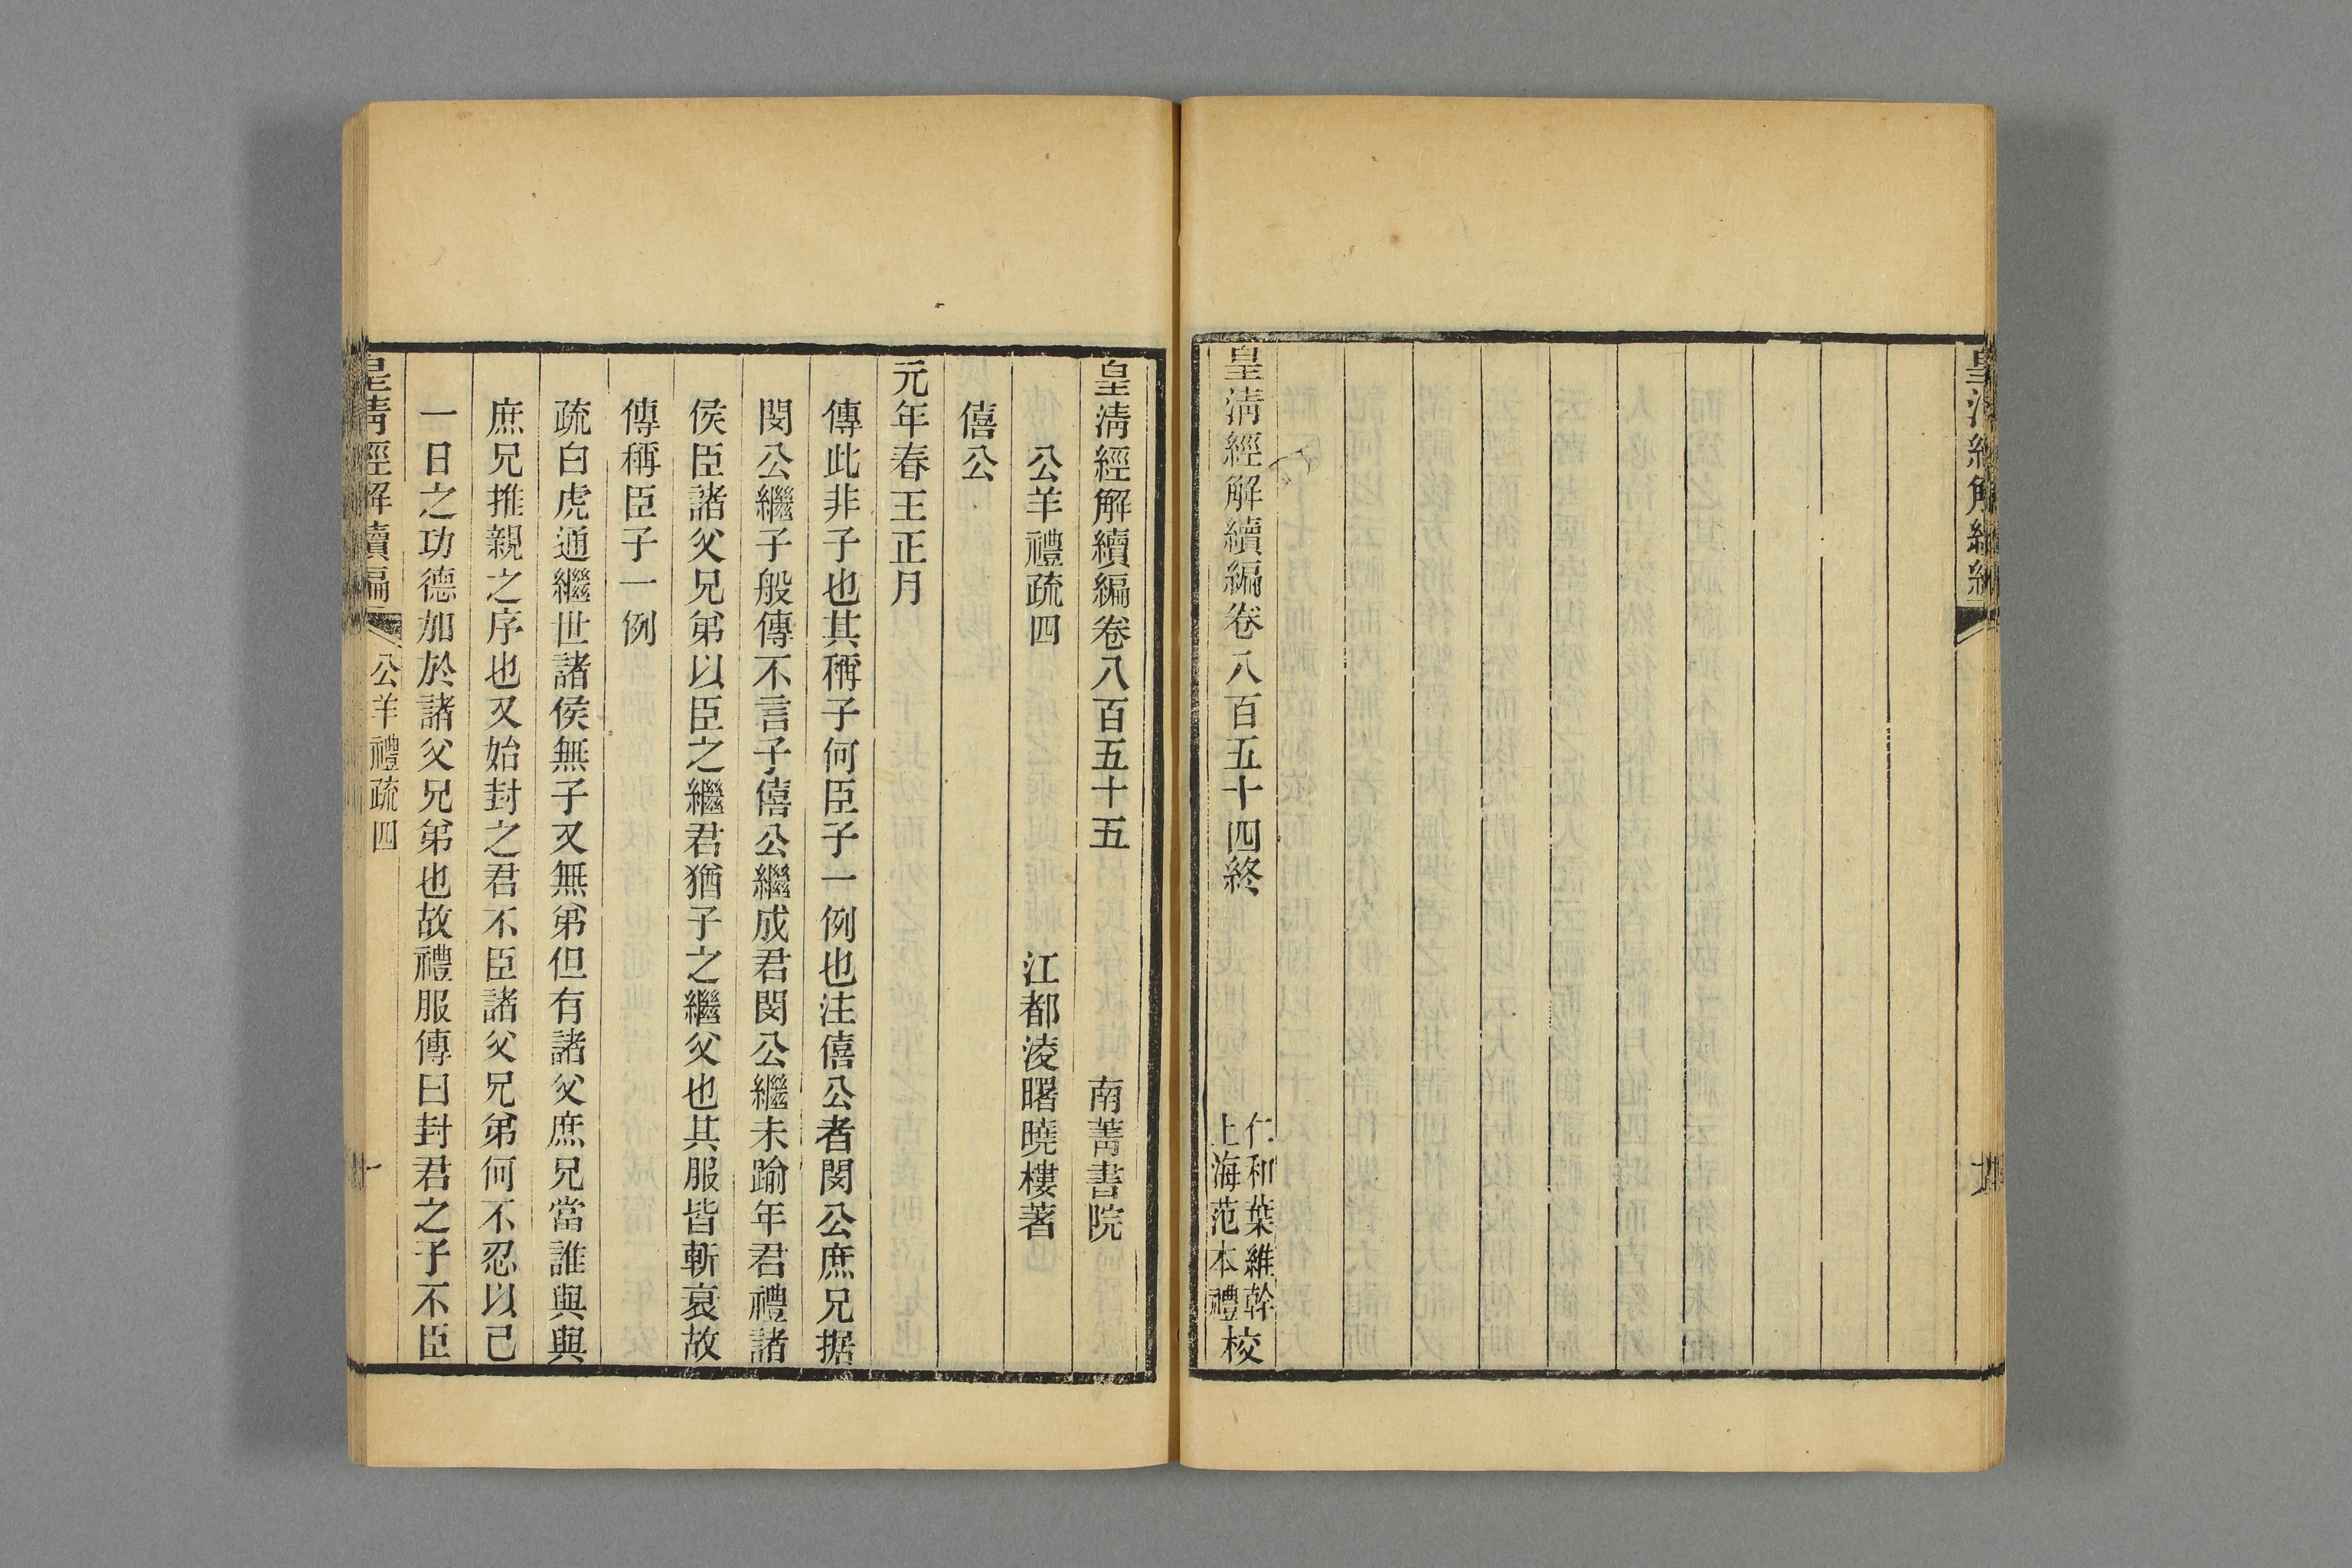 皇清經解續編卷八百五十四終
仁和葉維幹
上海范本禮校
皇清經解續編卷八百五十五
南菁書院
公羊禮疏四
江都淩曙曉樓著
僖公
元年春王正月
傳此非子也其稱子何臣子一例也注僖公者閔公庶兄据
閔公繼子般傳不言子僖公繼成君閔公繼未踰年君禮諸
侯臣諸父兄弟以臣之繼君猶子之繼父也其服皆斬衰故
傳稱臣子一例
疏白虎通繼世諸侯無子又無弟但有諸父庶兄當誰與與
庶兄推親之序也又始封之君不臣諸父兄弟何不忍以己
一日之功德加於諸父兄弟也故禮服傳曰封君之子不臣
皇清經解續編
公羊禮疏四
一